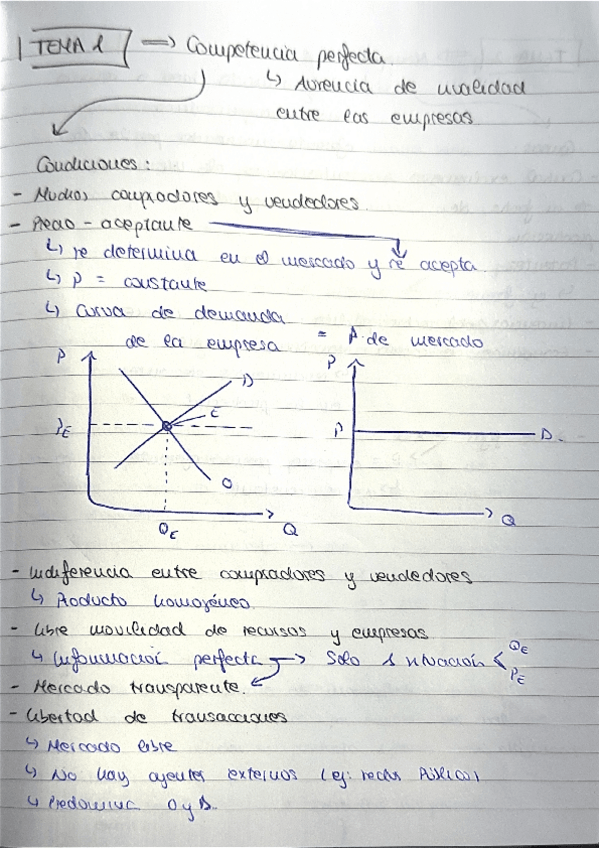 TEMA 1 => Competencia perfecta.
↳ Ausencia de rivalidad
entre las empresas
Condiciones:
- Muchos compradores y vendedores.
- Precio-aceptante
↳ se determina en el mercado y se acepta.
↳ P = constante
↳ Curva de demanda
de la empresa = P de mercado
P
D
E
PE
O
QE
Q
P
P
D.
Q
- Indiferencia entre compradores y vendedores
↳ Producto homogéneo.
- Libre movilidad de recursos y empresas
↳ Información perfecta → Solo 1 situación < QE
PE
- Mercado transparente.
- Libertad de transacciones
↳ Mercado libre
↳ No hay agentes externos (ej: sector Público)
↳ Predomina O y D.